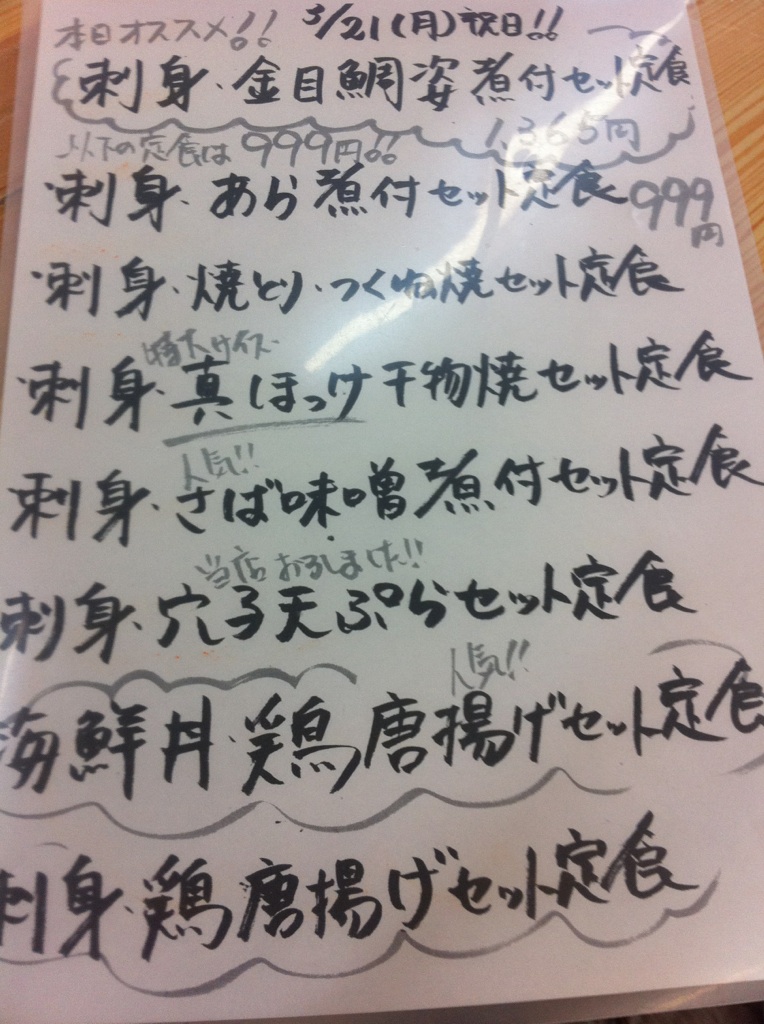 本日オススメ!! 3/21(月)祝日!!
刺身・金目鯛姿煮付セット定食
1,365円
以下の定食は999円!!
刺身・あら煮付セット定食 999円
刺身・焼とり・つくね焼セット定食
特大サイズ
刺身・真ほっけ干物焼セット定食
人気!!
刺身・さば味噌煮付セット定食
当店おろしました!!
刺身・穴子天ぷらセット定食
人気!!
海鮮丼・鶏唐揚げセット定食
刺身・鶏唐揚げセット定食